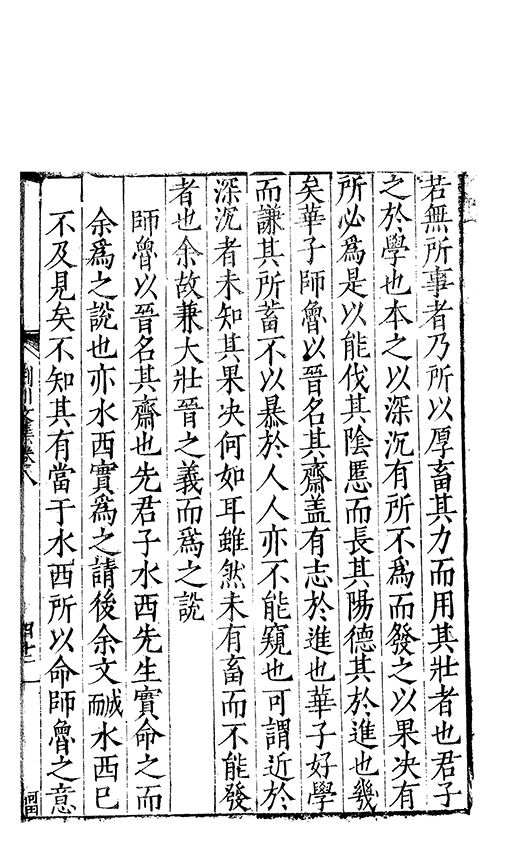 若無所事者乃所以厚畜其力而用其壯者也君子
之於學也本之以深沉有所不為而發之以果决有
所必為是以能伐其陰慝而長其陽德其於進也幾
矣華子師魯以晉名其齋盖有志於進也華子好學
而謙其所蓄不以暴於人人亦不能窺也可謂近於
深沉者未知其果决何如耳雖然未有畜而不能發
者也余故兼大壯晉之義而為之說
師魯以晉名其齋也先君子水西先生實命之而
余為之說也亦水西實為之請後余文誠水西已
不及見矣不知其有當于水西所以命師魯之意
荆川文集卷八
四十二